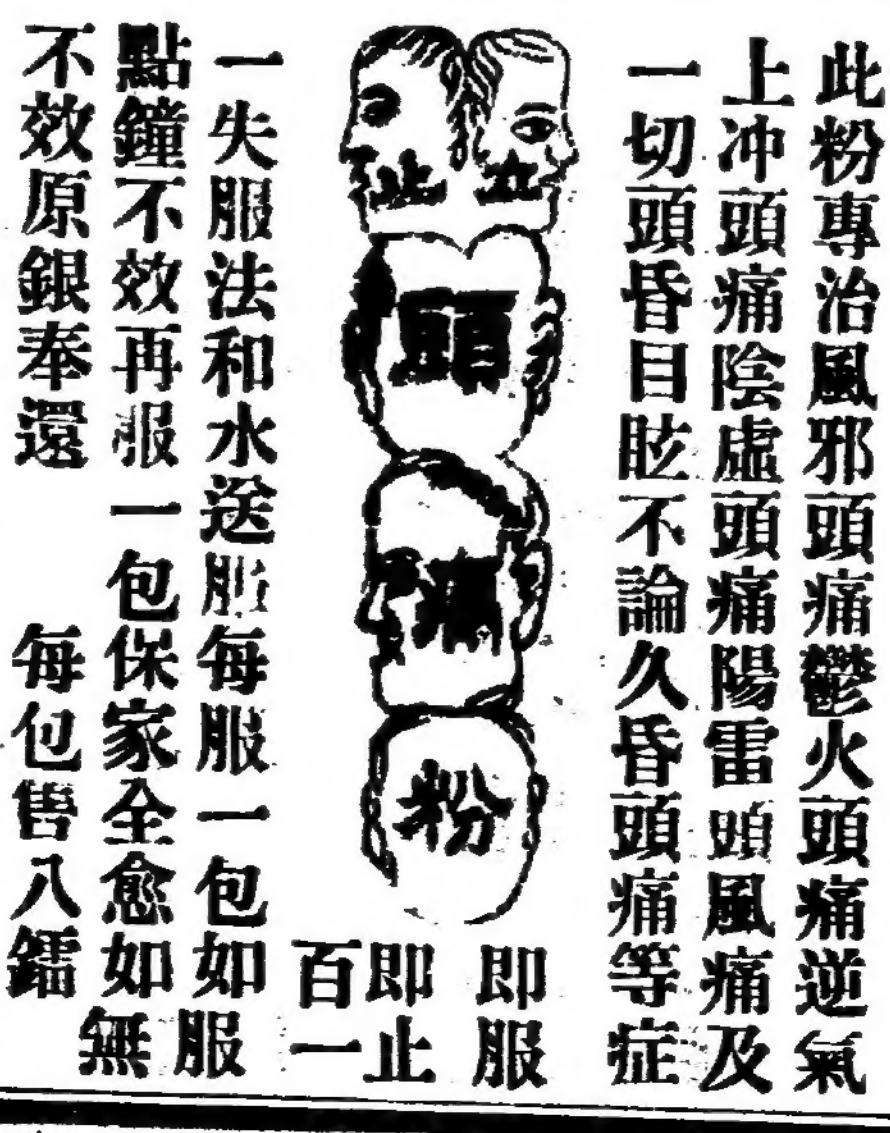 此粉專治風邪頭痛鬱火頭痛逆氣
上冲頭痛陰虛頭痛陽雷頭風痛及
一切頭昏目眩不論久昏頭痛等症
立止頭痛粉
即服
即止
百一
一失服法和水送服每服一包如服
點鐘不效再服一包保家全愈如無
不效原銀奉還 每包售八鐳